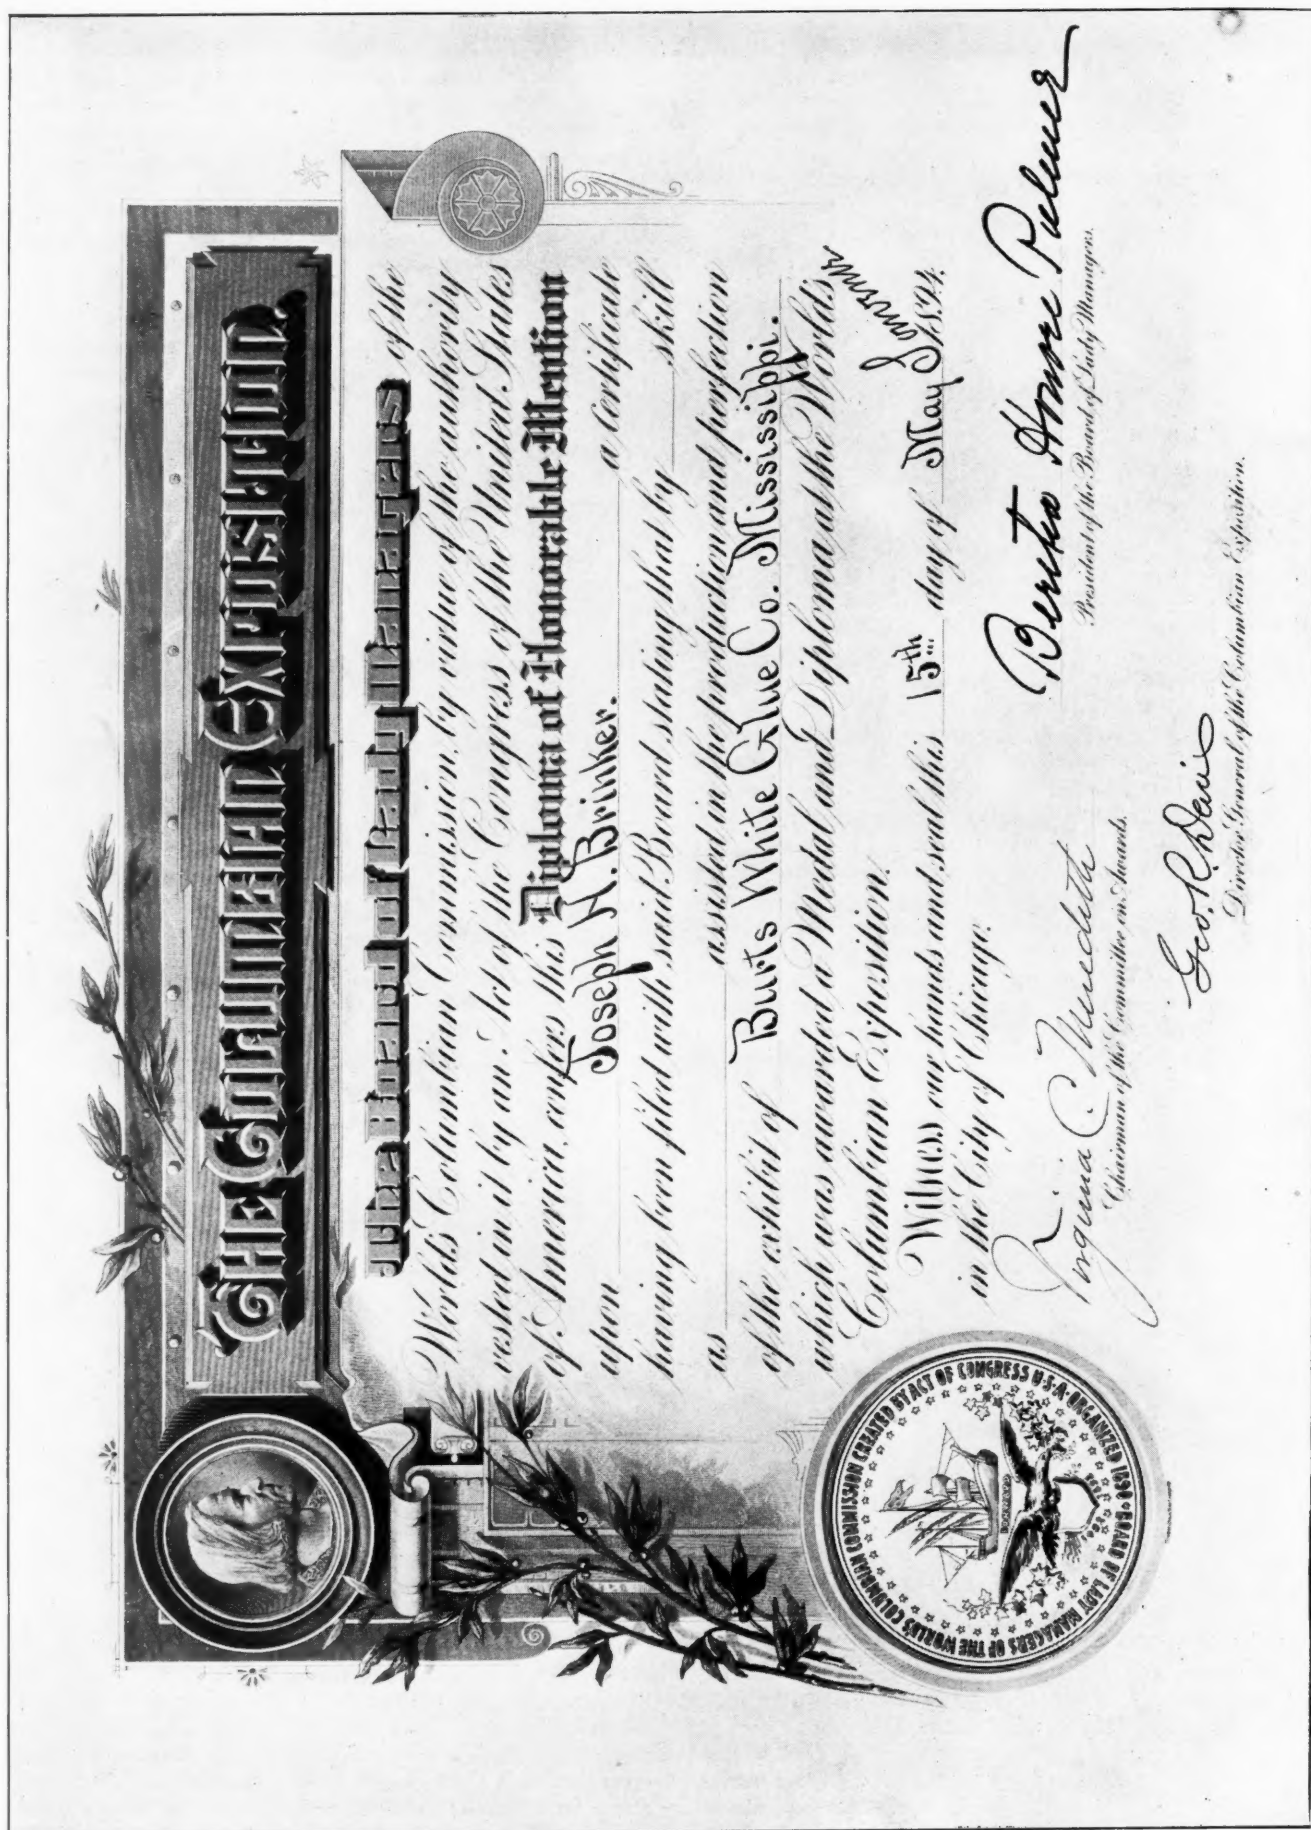 The Columbian Exposition.
The Board of Lady Managers of the
World's Columbian Commission, by virtue of the authority
vested in it by an Act of the Congress of the United States
of America, confers this Diploma of Honorable Mention
upon Joseph H. Brinker. a certificate
having been filed with said Board stating that by skill
as assisted in the production and perfection
of the exhibit of Burts White Glue Co. Mississippi.
which was awarded a Medal and Diploma at the World's
Columbian Exposition.
Witness our hands and seal this 15th day of May 1894.
in the City of Chicago.
Virginia C. Meredith
Chairman of the Committee on Awards.
Bertha Honoré Palmer
President of the Board of Lady Managers.
Geo. R. Davis
Director General of the Columbian Exposition.
BOARD OF LADY MANAGERS OF THE WORLDS COLUMBIAN COMMISSION CREATED BY ACT OF CONGRESS U·S·A· ORGANIZED 1890